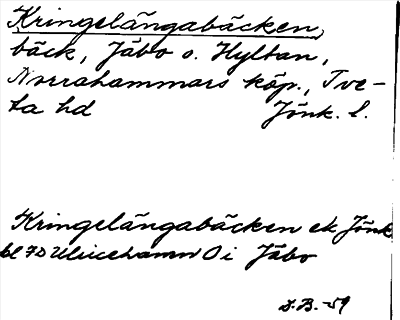 Kringelängabäcken,
bäck, Jäbo o. Hyltan,
Norrahammars köp., Tve-
ta hd Jönk. l.
Kringelängabäcken ek Jönk
bl 7D Ulricehamn Ö i Jäbo
S.B. -59